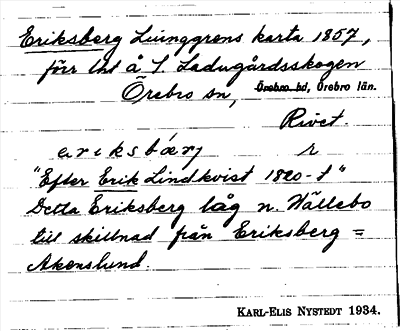 Eriksberg Ljunggrens karta 1857,
förr lht å S. Ladugårdsskogen
Örebro sn, Örebro hd, Örebro län.
Rivet.
eriksbærj r
"Efter Erik Lindkvist 1820-t"
Detta Eriksberg låg n. Hällebo
till skillnad från Eriksberg =
Akenslund.
KARL-ELIS NYSTEDT 1934.